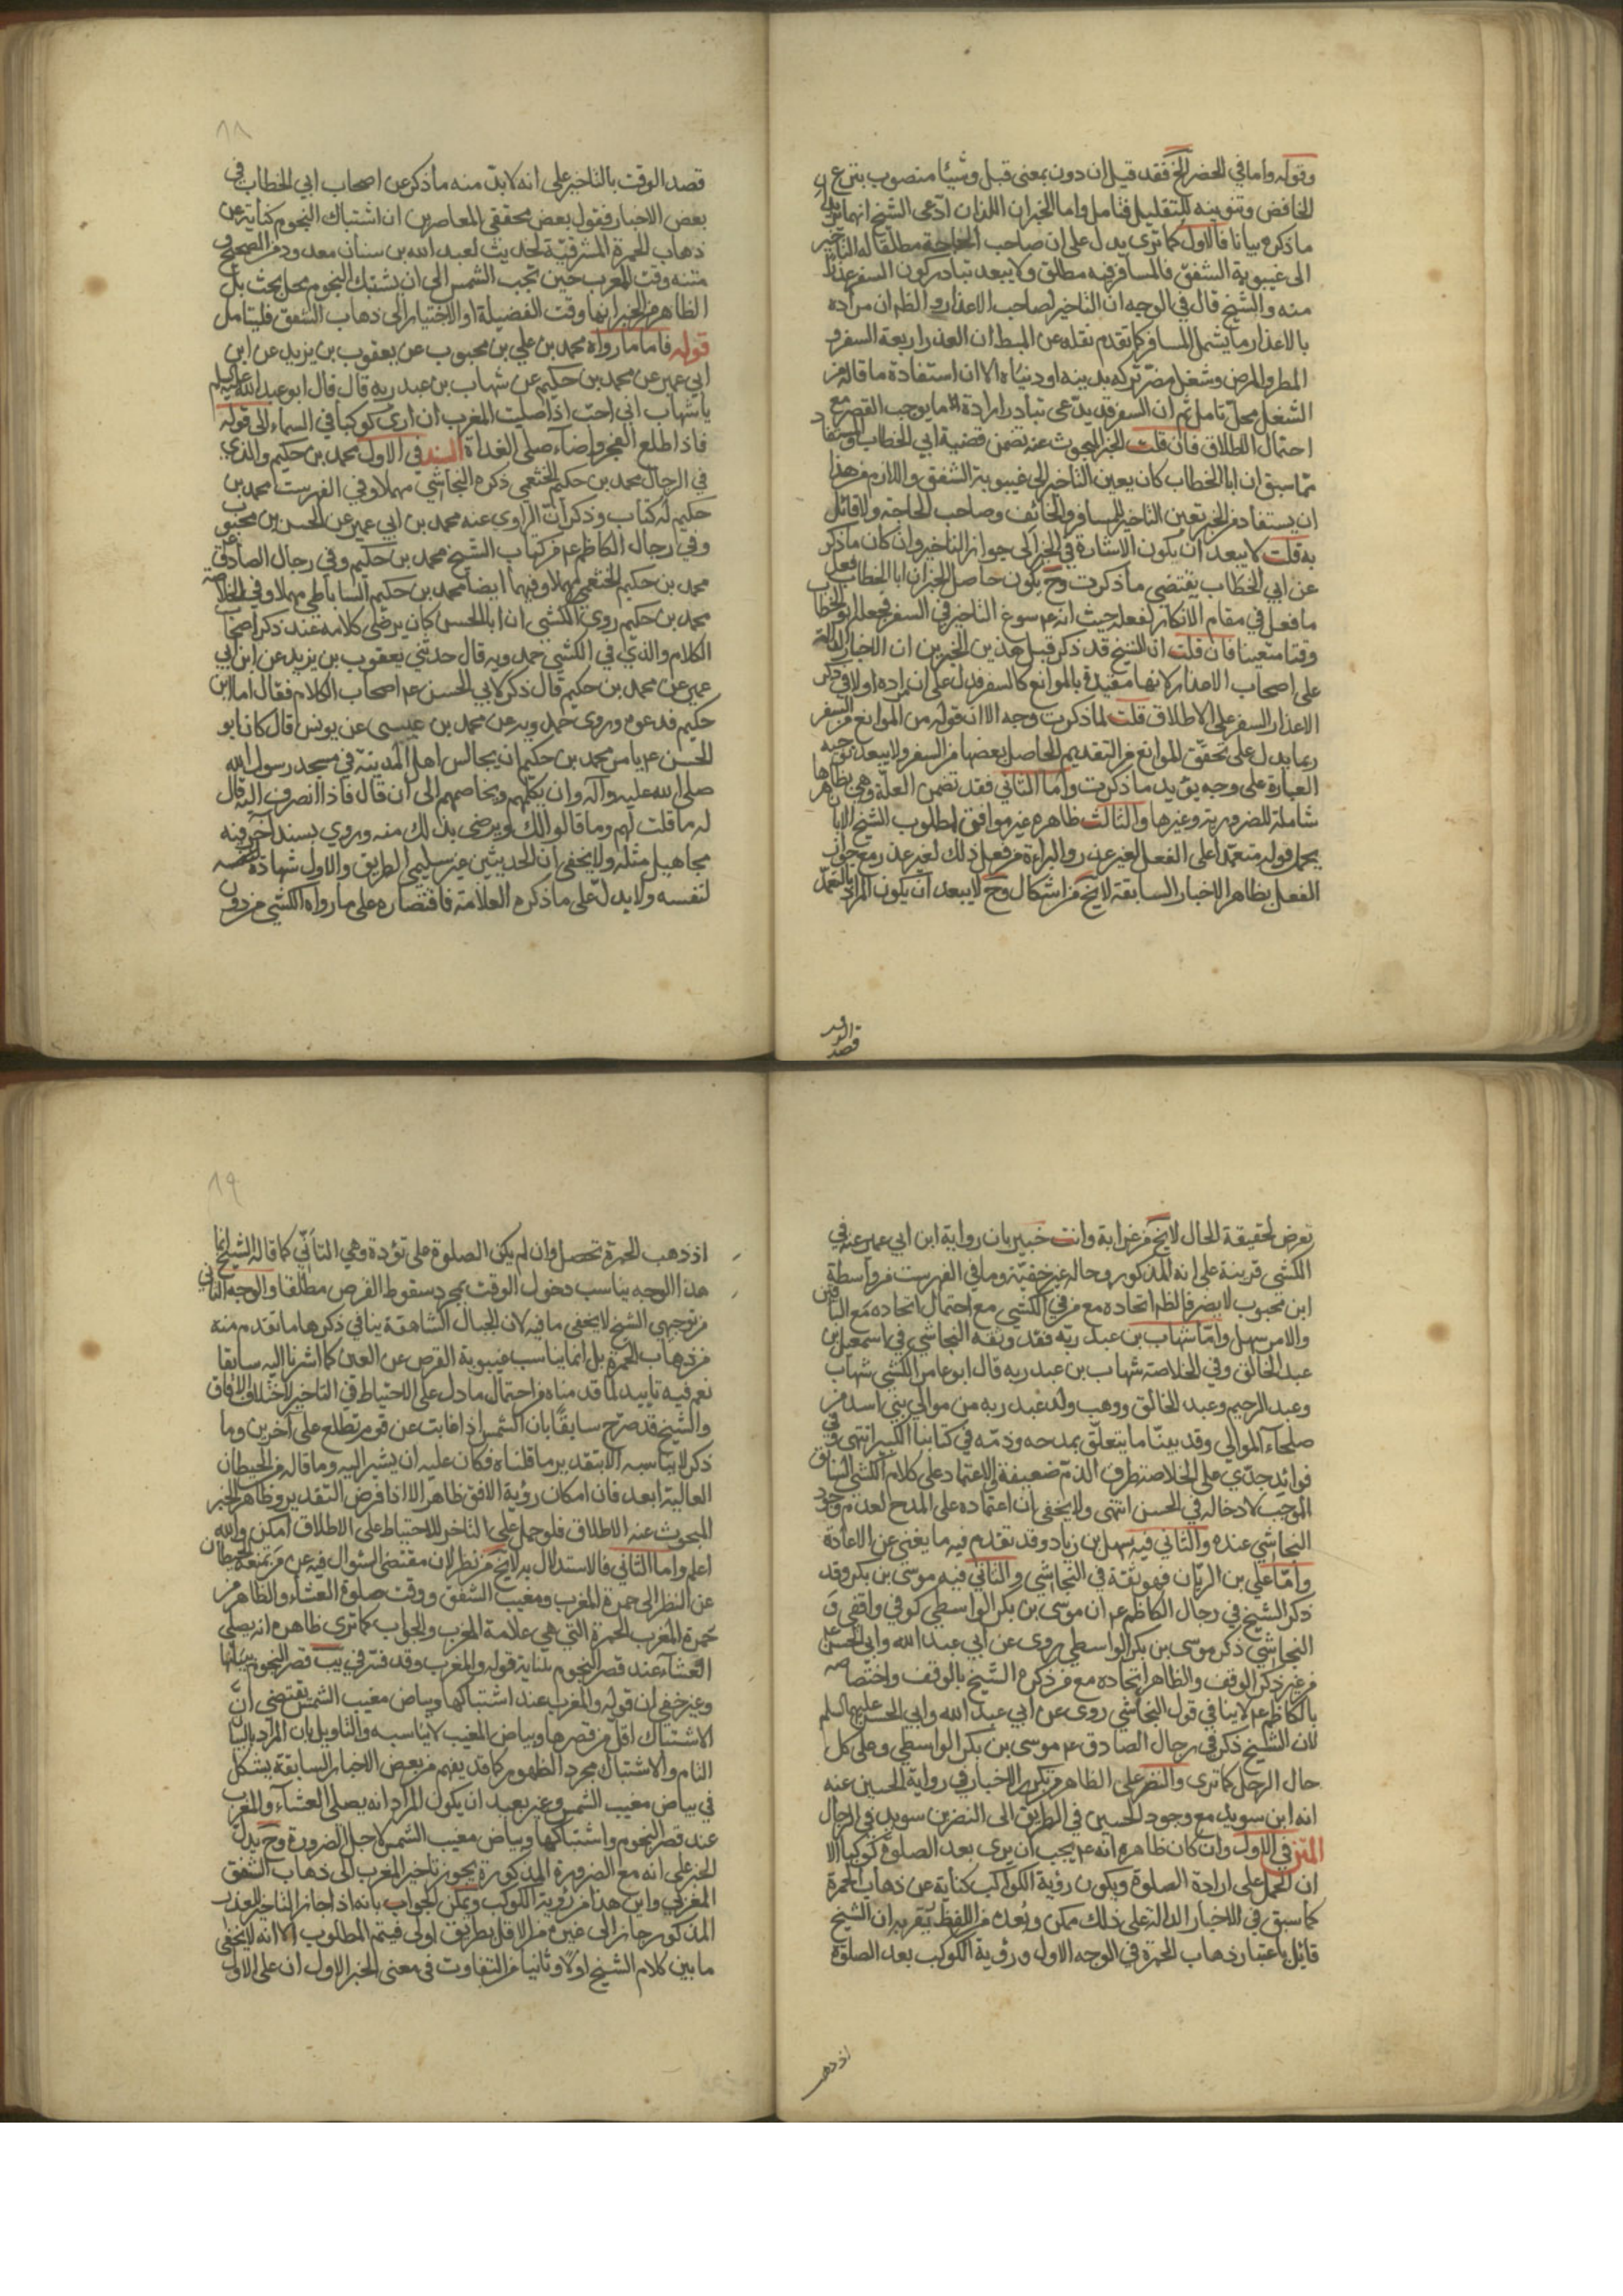 وقوله واما في الحضر الخ فقد قيل ان دون بمعنى قبل وشيئا منصوب بنزع
الخافض وتنوينه للتقليل فتامل واما الخبران اللذان ادعى الشيخ انهما
ما ذكره بيانا فالاول كما ترى يدل على ان صاحب الحاجة مطلقا له التاخير
الى غيبوبة الشفق فالمسافر فيه مطلق ولا يبعد تبادر كون السفر عذرا
منه والشيخ قال في الوجه ان التاخير لصاحب الاعذار والظ ان مراده
بالاعذار ما يشمل المسافر كما تقدم نقله عن المبسط ان العذر اربعة السفر و
المطر والمرض وشغل يضر تركه بدينه او دنياه الا ان استفادة ما قاله من
الشغل محل تامل ثم ان السفر قد يدعى تبادر ارادة ما يوجب القصر مع
احتمال الاطلاق فان قلت الخبر المبحوث عنه تضمن قضية ابي الخطاب والمستفاد
مما سبق ان ابا الخطاب كان يعين التاخير الى غيبوبة الشفق واللازم من هذا
ان يستفاد من الخبر تعين التاخير للمسافر والخائف وصاحب الحاجة ولا قائل
به قلت لا يبعد ان يكون الاشارة في الخبر الى جواز التاخير وان كان ما ذكر
عن ابي الخطاب يقتضي ما ذكرت وح يكون حاصل الخبر ان ابا الخطاب فعل
ما فعل في مقام الانكار لفعله حيث انه ع سوغ التاخير في السفر فجعله ابو الخطاب
وقتا متعينا فان قلت ان الشيخ قد ذكر قبل هذين الخبرين ان الاخبار الدالة
على اصحاب الاعذار لانها مقيدة بالموانع كالسفر فدل على ان مراده اولا في ذكر
الاعذار السفر على الاطلاق قلت لما ذكرت وجه الا ان قوله من الموانع من السفر
ربما يدل على تحقق الموانع من التقديم الحاصل بعضها من السفر ولا يبعد توجيه
العبارة على وجه يؤيد ما ذكرت واما الثاني فقد تضمن العلة وهي بظاهرها
شاملة للضرورية وغيرها والثالث ظاهره غير موافق لمطلوب الشيخ الا بان
يحمل قوله متعمدا على الفعل لغير عذر والبراءة من فعل ذلك لغير عذر مع جواز
الفعل بظاهر الاخبار السابقة لا يخ من اشكال وح لا يبعد ان يكون المراد بالتعمد
قصد الوقت
٨٨
قصد الوقت بالتاخير على انه لا بد منه ما ذكر عن اصحاب ابي الخطاب في
بعض الاخبار فقول بعض محققي المعاصرين ان اشتباك النجوم كناية عن
ذهاب الحمرة المشرقية لحديث لعبد الله بن سنان معدود من الصحيح و
متنه وقت المغرب حين تجب الشمس الى ان يشتبك النجوم محل بحث بل
الظاهر من الخبر انها وقت الفضيلة او الاختيار الى ذهاب الشفق فليتامل
قوله فاما ما رواه محمد بن علي بن محبوب عن يعقوب بن يزيد عن ابن
ابي عمير عن محمد بن حكيم عن شهاب بن عبد ربه قال قال ابو عبد الله عليه السلم
يا شهاب اني احب اذا صليت المغرب ان ارى كوكبا في السماء الى قوله
فاذا طلع الفجر واضاء صلى الغداة السند في الاول محمد بن حكيم والذي
في الرجال محمد بن حكيم الخثعمي ذكره النجاشي مهملا وفي الفهرست محمد بن
حكيم له كتاب وذكر ان الراوي عنه محمد بن ابي عمير عن الحسن بن محبوب
وفي رجال الكاظم ع من كتاب الشيخ محمد بن حكيم وفي رجال الصادق ع
محمد بن حكيم الخثعمي مهملا وفيهما ايضا محمد بن حكيم الساباطي مهملا وفي الخلاصة
محمد بن حكيم روى الكشي ان ابا الحسن كان يرضى كلامه عند ذكر اصحاب
الكلام والذي في الكشي حمدويه قال حدثني يعقوب بن يزيد عن ابن ابي
عمير عن محمد بن حكيم قال ذكر لابي الحسن ع اصحاب الكلام فقال اما ابن
حكيم فدعوه وروى حمدويه عن محمد بن عيسى عن يونس قال كان ابو
الحسن ع يامر محمد بن حكيم ان يجالس اهل المدينة في مسجد رسول الله
صلى الله عليه وآله وان يكلمهم ويخاصمهم الى ان قال فاذا انصرف اليه قال
له ما قلت لهم وما قالوا لك ويرضى بذلك منه وروى بسند آخر فيه
مجاهيل مثله ولا يخفى ان الحديثين غير سليمي الطريق والاول شهادة
لنفسه ولا يدل على ما ذكره العلامة فاقتصاره على ما رواه الكشي من دون
تعرض لحقيقة الحال لا يخ من غرابة وانت خبير بان رواية ابن ابي عمير عنه في
الكشي قرينة على انه المذكور وحاله غير خفية وما في الفهرست من واسطة
ابن محبوب لا يضر فالظ اتحاده مع من في الكشي مع احتمال اتحاده مع الباقين
والامر سهل واما شهاب بن عبد ربه فقد وثقه النجاشي في اسمعيل بن
عبد الخالق وفي الخلاصة شهاب بن عبد ربه قال ابو عامر الكشي شهاب
وعبد الرحيم وعبد الخالق ووهب ولد عبد ربه من موالي بني اسد من
صلحاء الموالي وقد بينا ما يتعلق بمدحه وذمه في كتابنا الكبير انتهى وفي
فوائد جدي على الخلاصة طرف الذم ضعيفة والاعتماد على كلام الكشي السابق
الموجب لادخاله في الحسن انتهى ولا يخفى ان اعتماده على المدح لعدم وجود
النجاشي عنده والثاني فيه سهل بن زياد وقد تقدم فيه ما يغني عن الاعادة
واما علي بن الريان فهو ثقة في النجاشي والثاني فيه موسى بن بكر وقد
ذكر الشيخ في رجال الكاظم ع ان موسى بن بكر الواسطي كوفي واقفي و
النجاشي ذكر موسى بن بكر الواسطي روى عن ابي عبد الله وابي الحسن ع
من غير ذكر الوقف والظاهر اتحاده مع من ذكره الشيخ بالوقف واختصاصه
بالكاظم ع لا ينافي قول النجاشي روى عن ابي عبد الله وابي الحسن عليهما السلم
لان الشيخ ذكر في رجال الصادق ع موسى بن بكر الواسطي وعلى كل
حال الرجل كما ترى والنضر على الظاهر من تكرر الاخبار في رواية الحسين عنه
انه ابن سويد مع وجود الحسين في الطريق الى النضر بن سويد في الرجال
المتن في الاول وان كان ظاهره انه ع يحب ان يرى بعد الصلوة كوكبا الا
ان الحمل على ارادة الصلوة ويكون رؤية الكواكب كناية عن ذهاب الحمرة
كما سبق في الاخبار الدالة على ذلك ممكن وبعده من اللفظ يقربه ان الشيخ
قائل باعتبار ذهاب الحمرة في الوجه الاول ورؤية الكوكب بعد الصلوة
اذ ذهب
٨٩
اذ ذهب الحمرة تحصل وان لم يكن الصلوة على تؤدة وهي التأني كما قاله الشيخ انما
هذا الوجه يناسب دخول الوقت بمجرد سقوط القرص مطلقا والوجه الثاني
من توجيهي الشيخ لا يخفى ما فيه لان الجبال الشاهقة ينافي ذكرها ما تقدم منه
من ذهاب الحمرة بل انما يناسب غيبوبة القرص عن العين كما اشرنا اليه سابقا
نعم فيه تاييد لما قدمناه من احتمال ما دل على الاحتياط في التاخير لاختلاف الافاق
والشيخ قد صرح سابقا بان الشمس اذا غابت عن قوم تطلع على آخرين وما
ذكر لا يناسبه الا بتقدير ما قلناه فكان عليه ان يشير اليه وما قاله من الحيطان
العالية ابعد فان امكان رؤية الافق ظاهر الا اذا فرض التقدير وظاهر الخبر
المبحوث عنه الاطلاق فلو حمل على التاخر للاحتياط على الاطلاق امكن والله
اعلم واما الثاني فالاستدلال به لا يخ من نظر لان مقتضى السؤال فيه عن من تمنعه الحيطان
عن النظر الى حمرة المغرب ومغيب الشفق ووقت صلوة العشاء والظاهر من
حمرة المغرب الحمرة التي هي علامة المغرب والجواب كما ترى ظاهره انه يصلي
العشاء عند قصر النجوم بقوله والمغرب وقد فسر في يب قصر النجوم ببيانها
وغير خفي ان قوله والمغرب عند اشتباكها وبياض مغيب الشمس يقتضي ان
الاشتباك اقل من قصرها وبياض المغيب لا يناسبه والتاويل بان المراد بالبيان
التام والاشتباك مجرد الظهور كما قد يفهم من بعض الاخبار السابقة يشكل
في بياض مغيب الشمس وغير بعيد ان يكون المراد انه يصلي العشاء والمغرب
عند قصر النجوم واشتباكها وبياض مغيب الشمس لاجل الضرورة وح يدل
الخبر على انه مع الضرورة المذكورة يجوز تاخير المغرب الى ذهاب الشفق
المغربي واين هذا من رؤية الكوكب ويمكن الجواب بانه اذا جاز التاخير للعذر
المذكور جاز الى غيره من الاقل بطريق اولى فيتم المطلوب الا انه لا يخفى
ما بين كلام الشيخ اولا وثانيا من التفاوت في معنى الخبر الاول ان على الاول